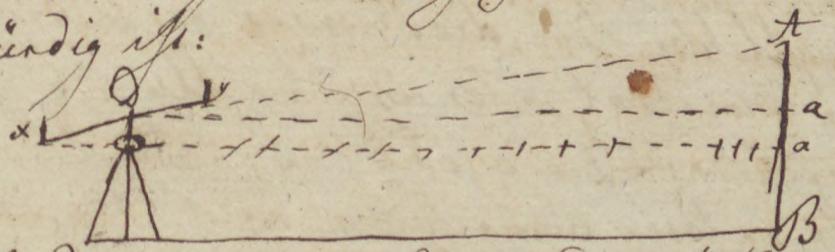 ündig ist:
A
x y
a
a
B